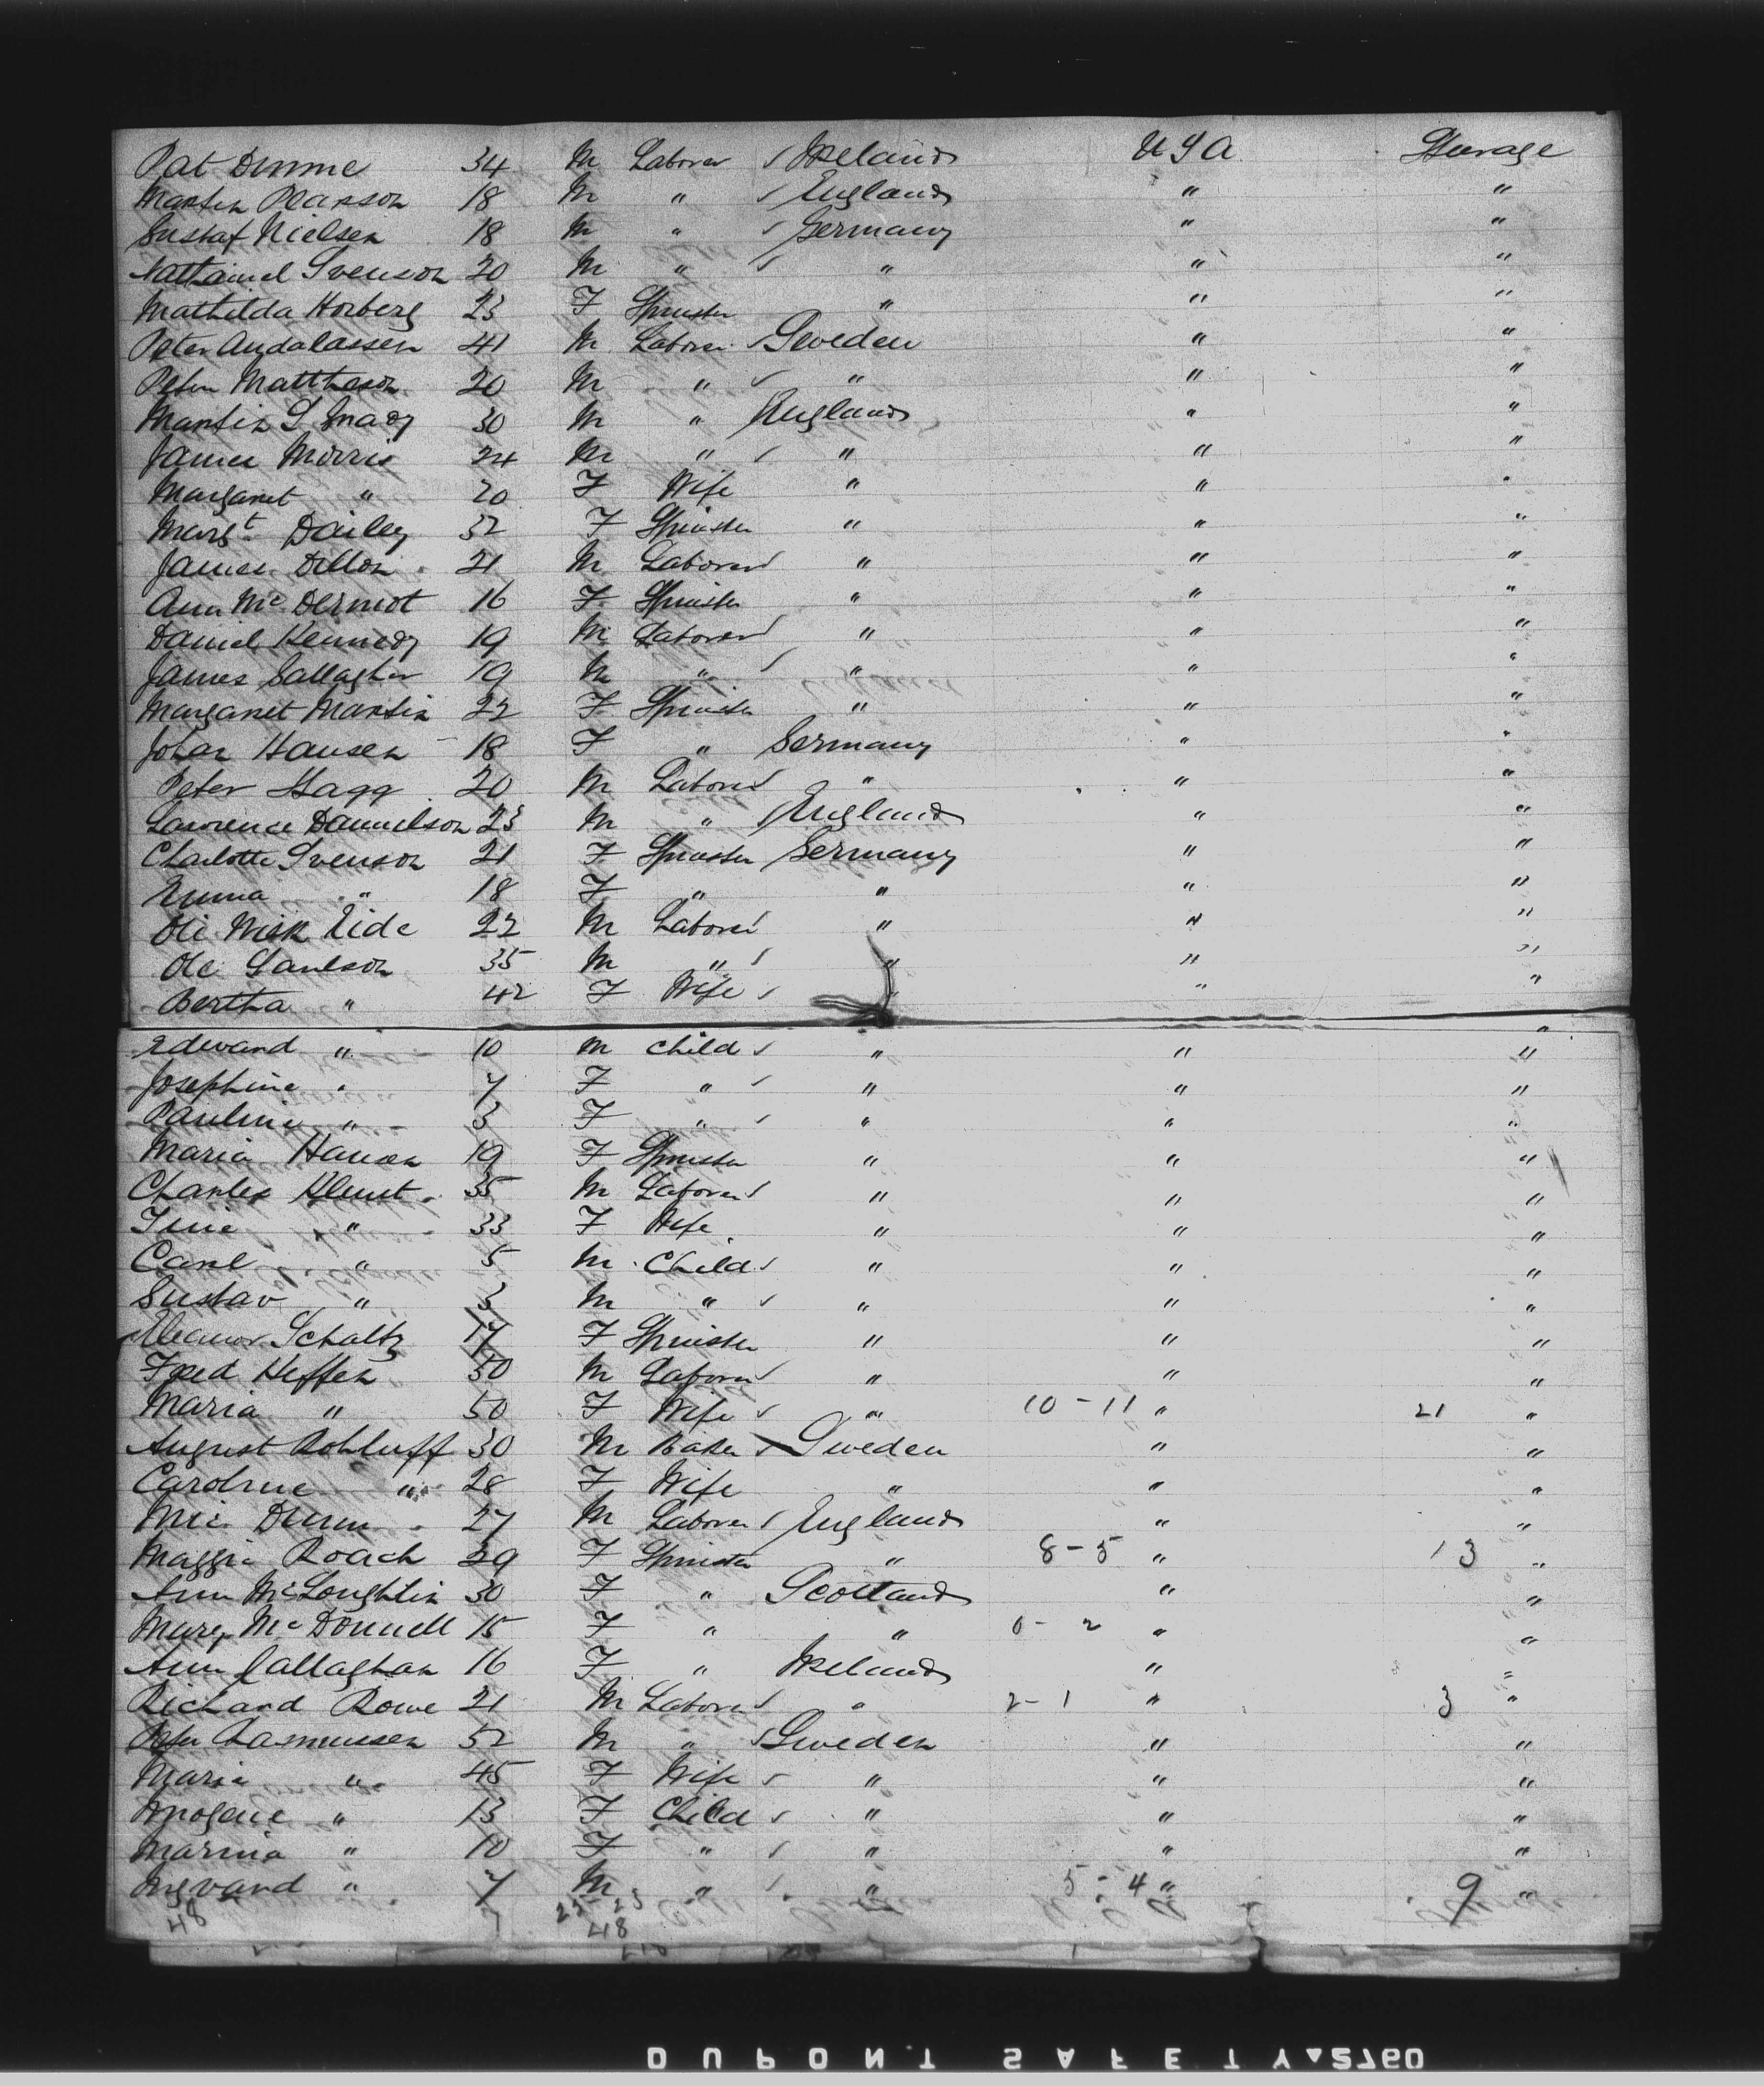 Pat Dunne 34 M Laborer ✓ Ireland U S A Steerage
Martin Pearson 18 M " ✓ England " "
Gustaf Nielsen 18 M " ✓ Germany " "
Nathaniel Svenson 20 M " ✓ " " "
Mathilda Horberg 23 F Spinster " " "
Peter Andalassen 41 M Laborer ✓ Sweden " "
Peter Mattheson 20 M " ✓ " " "
Martin 30 M " England " "
James Morris 24 M " ✓ " " "
Margaret " 20 F Wife " " "
Margt Dailey 32 F Spinster " " "
James Dillon 21 M Laborer ✓ " " "
Ann McDermot 16 F Spinster " " "
Daniel Kennedy 19 M Laborer ✓ " " "
James Gallagher 19 M " ✓ " " "
Margaret Martin 22 F Spinster " " "
Johan Hansen 18 F " Germany " "
Peter Hagg 20 M Laborer ✓ " " "
Lawrence Danielson 23 M " ✓ England " "
Charlotte Svenson 21 F Spinster Germany " "
Emma " 18 F " " " "
Ole Eide 22 M Laborer ✓ " " "
Ole 35 M " ✓ " " "
Bertha " 42 F Wife ✓ " " "
Edward " 10 M Child ✓ " " "
Josephine " 7 F " ✓ " " "
Pauline " 3 F " ✓ " " "
Maria Hansen 19 F Spinster " " "
Charles Klunt 35 M Laborer ✓ " " "
" 33 F Wife " " "
Carl " 5 M Child ✓ " " "
Gustav " 3 M " ✓ " " "
Eleanor Schaltz 17 F Spinster " " "
Fred Keffen 50 M Laborer ✓ " " "
Maria " 50 F Wife ✓ " 10 - 11 " 21 "
August Rohluff 30 M Baker ✓ Sweden " "
Caroline " 28 F Wife " " "
Mic Dunn 27 M Laborer ✓ England " "
Maggie Roach 29 F Spinster " 8 - 5 " 13 "
Ann McLoughlin 30 F " Scotland " "
Mary McDonnell 15 F " " 0 - 2 " "
Ann Callaghan 16 F " Ireland " "
Richard Rowe 21 M Laborer ✓ " 2 - 1 " 3 "
Peter Rasmussen 52 M " ✓ Sweden " "
Maria " 45 F Wife ✓ " " "
" 13 F Child ✓ " " "
Marina " 10 F " ✓ " " "
Ingvard " 7 M " ✓ " 5 - 4 " 9 "
48 25 - 23
48
DUPONT SAFETY ▲ 2760